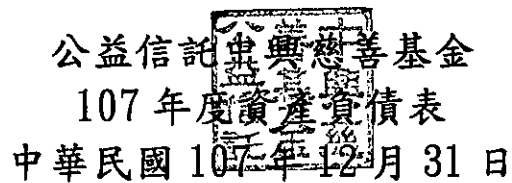 公益信託中興慈善基金
107 年度資產負債表
中華民國 107 年 12 月 31 日